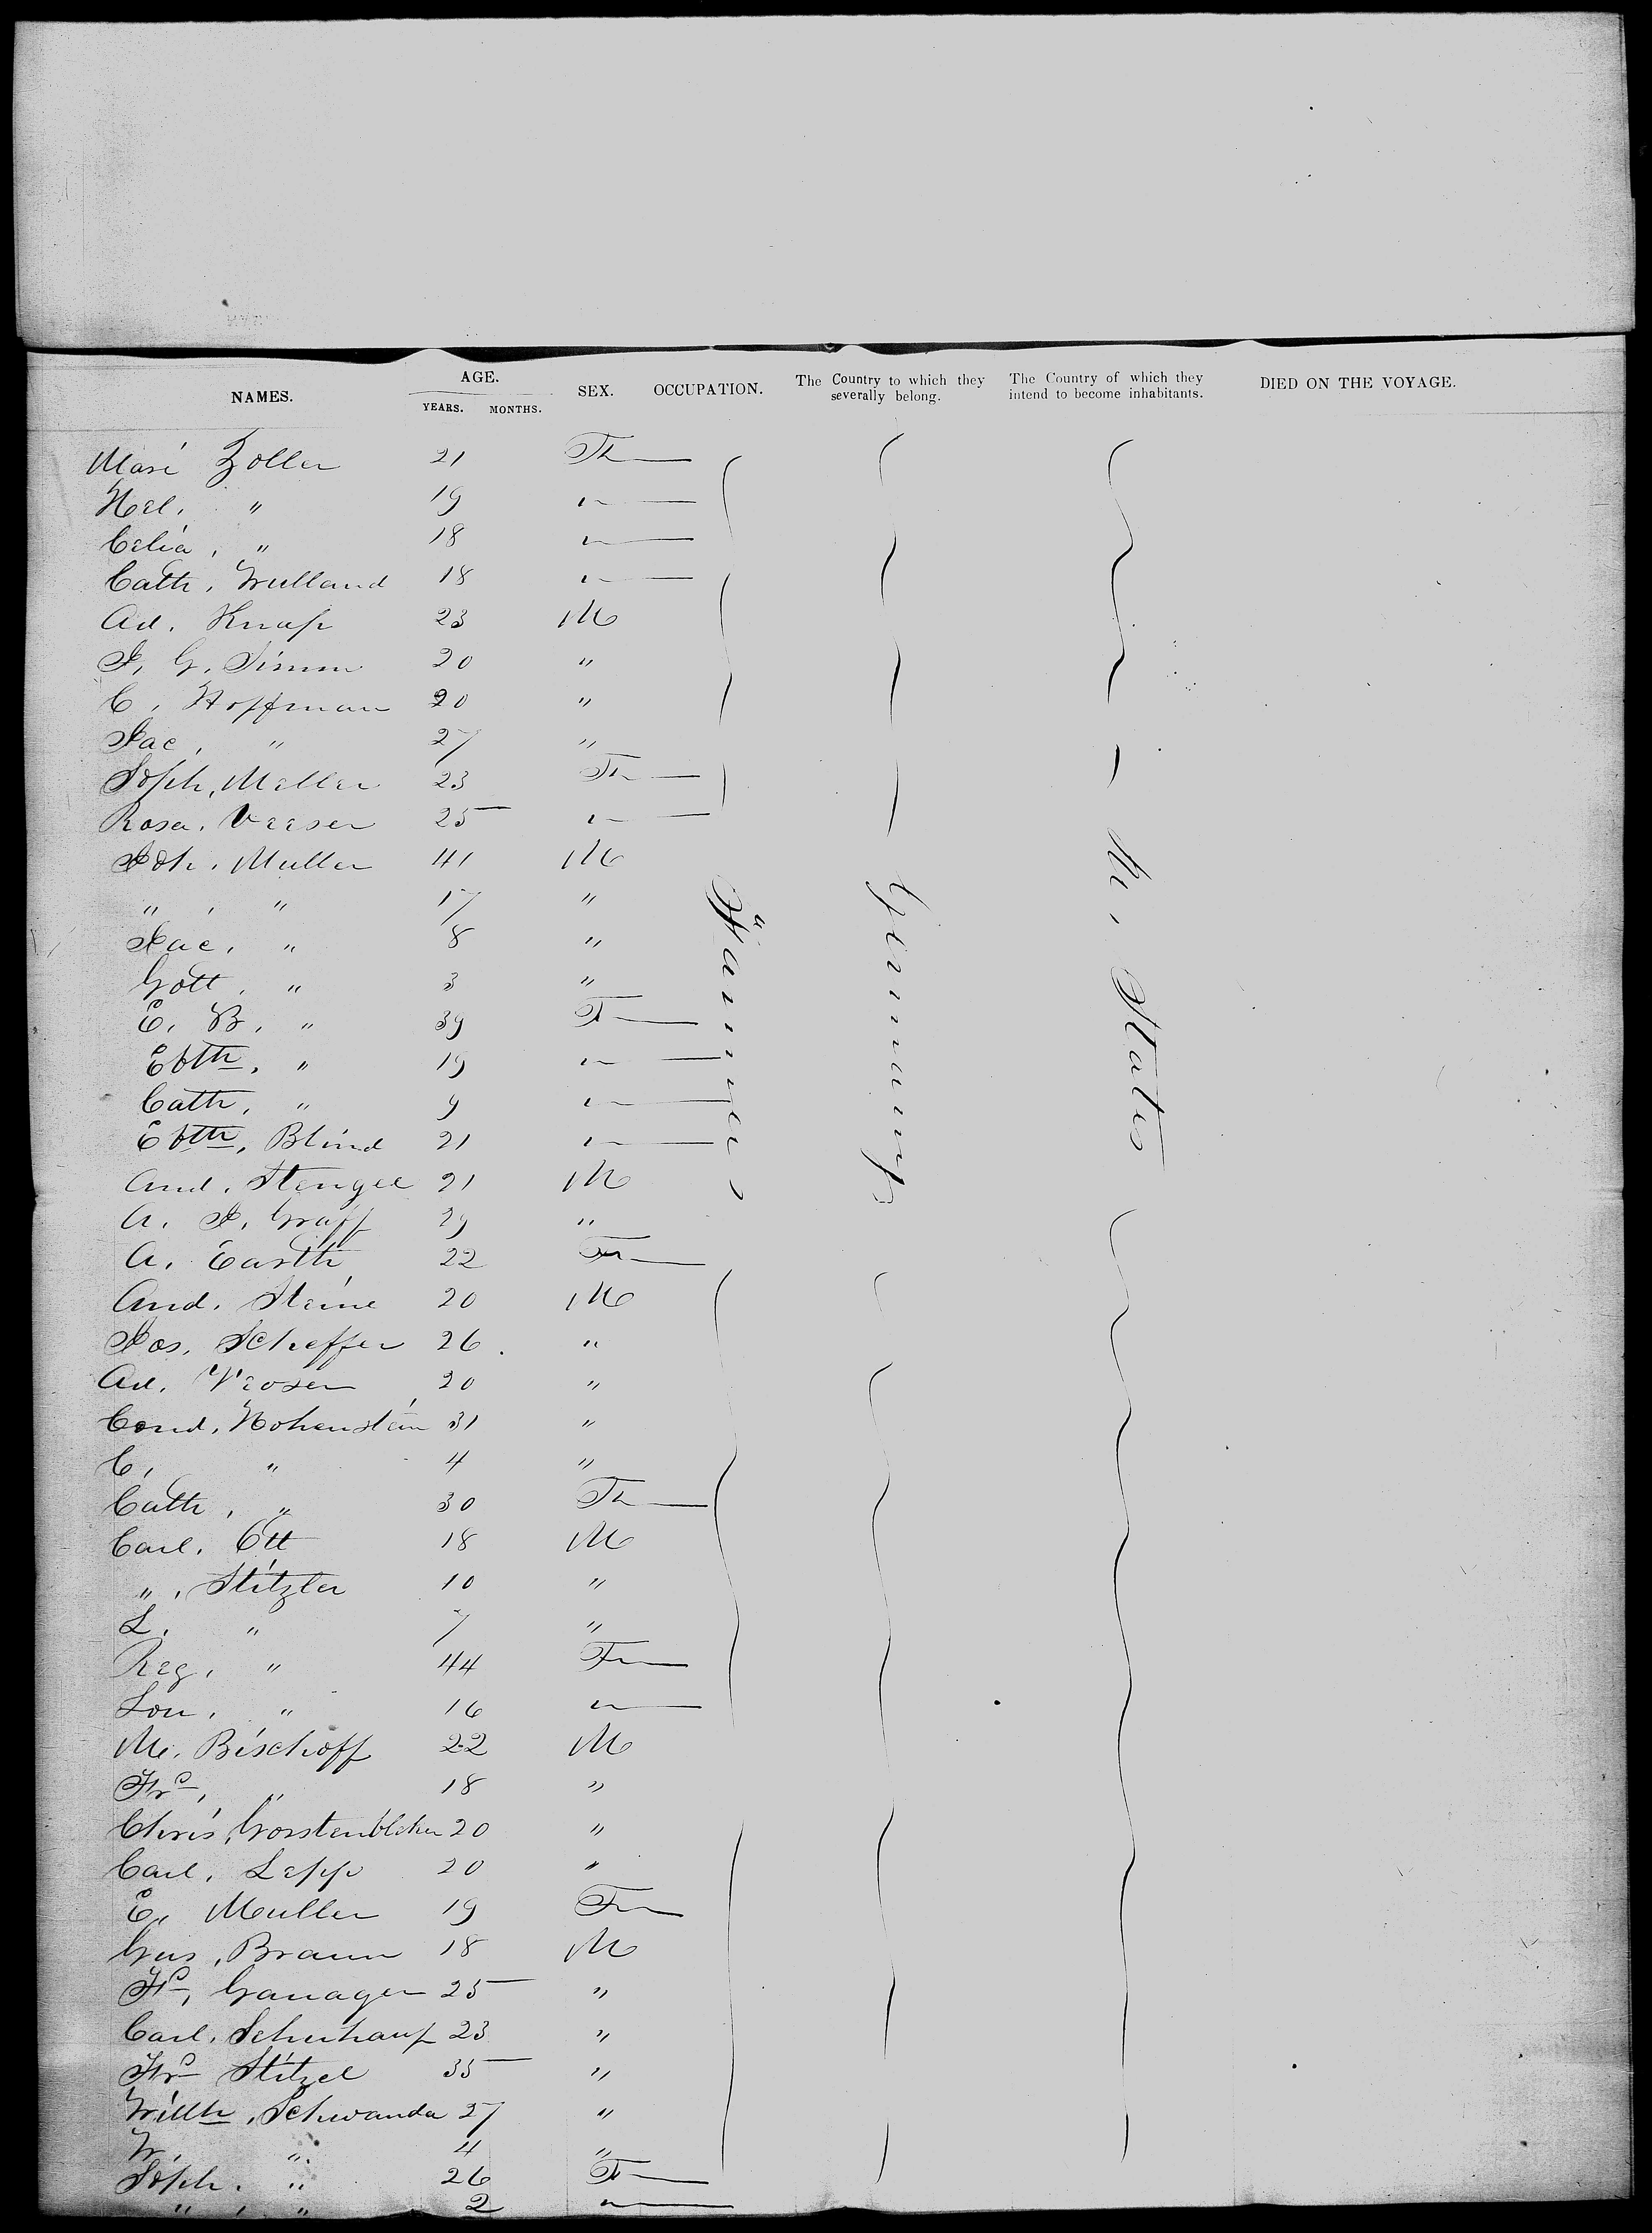 NAMES. AGE. YEARS. MONTHS. SEX. OCCUPATION. The Country to which they severally belong. The Country of which they intend to become inhabitants. DIED ON THE VOYAGE.
Mari Zoller 21 Fm
Hel, " 19 "
Celia, " 18 "
Cath, Wulland 18 "
Ad. Knap 23 M
J, G, Simm 20 "
C, Hoffman 20 "
Jac, " 27 "
Soph, Meller 23 Fm
Rosa, Veeser 25 "
Joh, Muller 41 M
" , " 17 "
Jac, " 8 "
Gott, " 3 "
E, B, " 39 F
Ebth, " 19 "
Cath, " 9 "
Ebth, Blind 21 "
And, Stengel 21 M
A. J, Graff 29 "
A, Earth 22 Fm
And, Steine 20 M
Jos, Scheffer 26 "
Ad. Veoser 20 "
Cond, Hohenstein 31 "
C, " 4 "
Cath, " 30 Fm
Carl, Ott 18 M
" , Stitzler 10 "
L. " 7 "
Reg, " 44 Fm
Lou, " 16 "
M. Bischoff 22 M
Frd, " 18 "
Chris, 20 "
Carl, Lepp 20 "
E, Muller 19 Fm
Gus, Braun 18 M
Fd, Ganager 25 "
Carl, Schuhauf 23 "
Frd Stitzel 35 "
Willh, Schwanda 27 "
W, " 4 "
Soph, " 26 F
" , " 2 "
Farmers
Germany
U, States